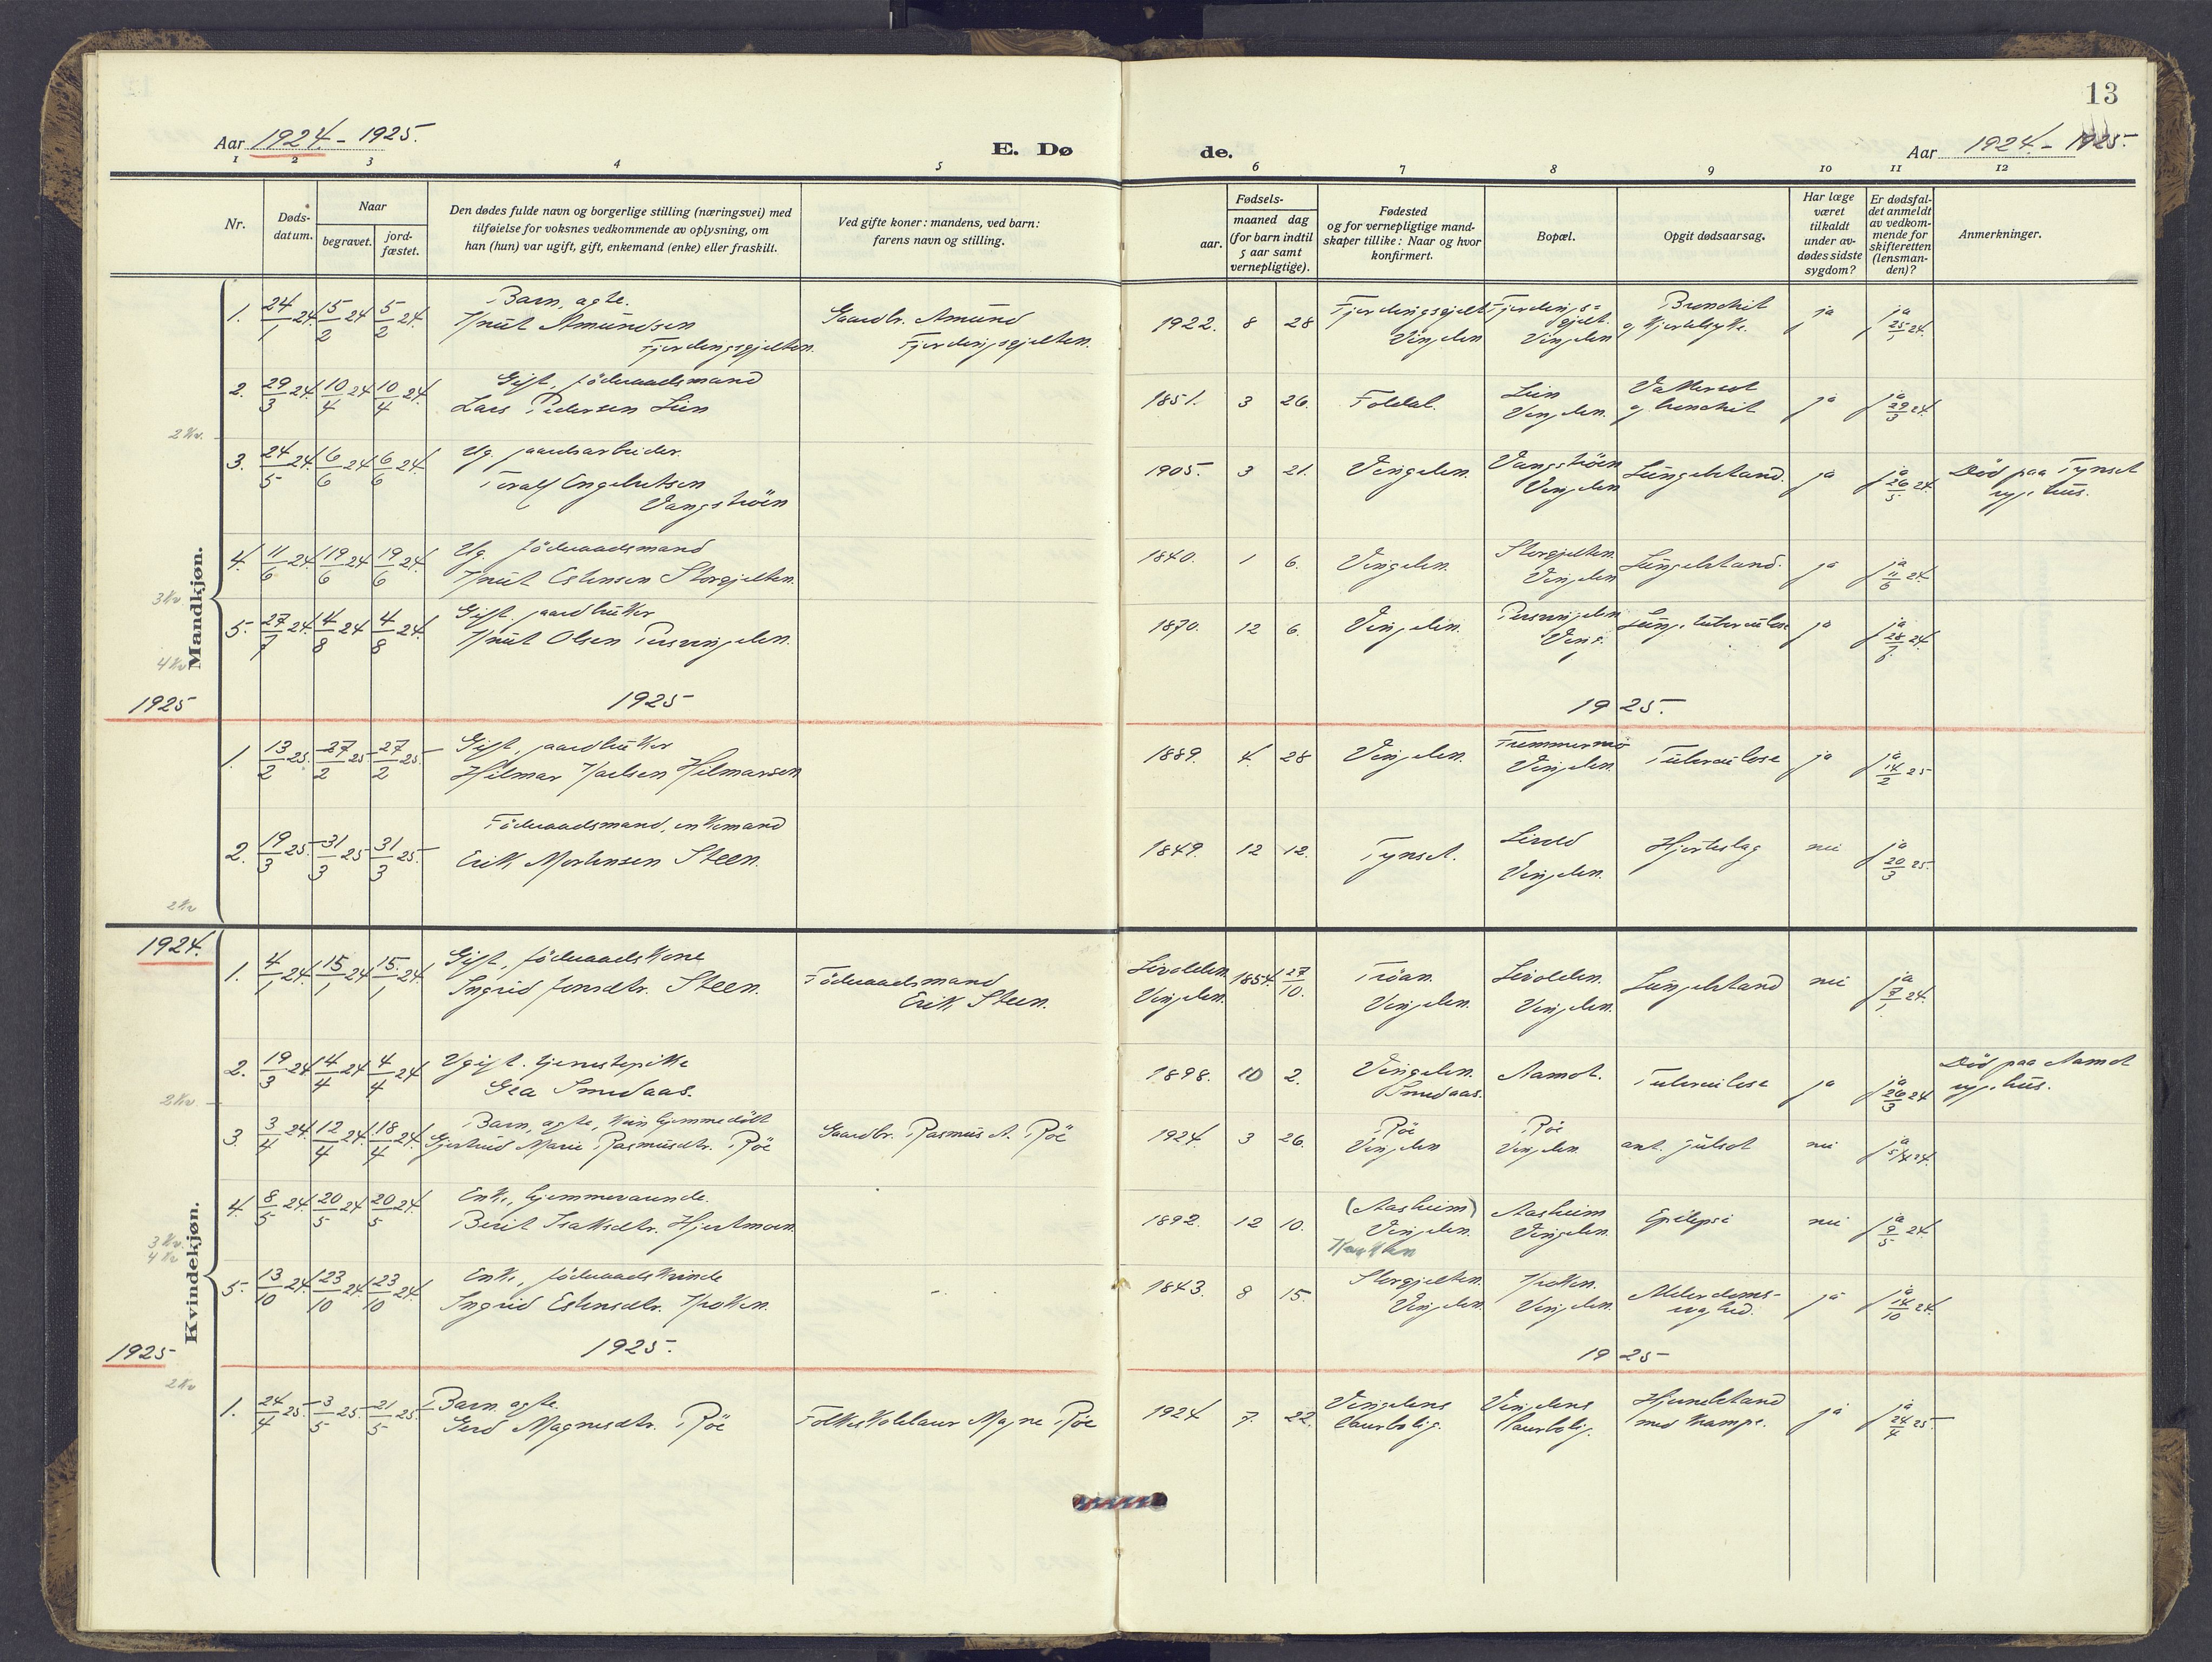 13
Aar 1924.- 1925.
E. Dø
de.
Aar 1924.- 1925.
1 2 3 4 5 6 7 8 9 10 11 12
Nr.
Døds-
datum.
Naar
begravet.
jord-
fæstet.
Den dødes fulde navn og borgerlige stilling (næringsvei) med
tilføielse for voksnes vedkommende av oplysning, om
han (hun) var ugift, gift, enkemand (enke) eller fraskilt.
Ved gifte koner: mandens, ved barn:
farens navn og stilling.
Fødsels-
aar.
maaned dag
(for barn indtil
5 aar samt
vernepligtige).
Fødested
og for vernepligtige mand-
skaper tillike: Naar og hvor
konfirmert.
Bopæl.
Opgit dødsaarsag.
Har læge
været
tilkaldt
under av-
dødes sidste
sygdom?
Er dødsfal-
det anmeldt
av vedkom-
mende for
skifteretten
(lensman-
den)?
Anmerkninger.
Mandkjøn.
1. 24/1 24. 5/2 24 5/2 24. Barn, agte.
Knut Amundsen
Fjerdingsgjelten.
Gaardbr. Amund
Fjerdingsgjelten.
1922. 8 28 Fjerdingsgjelt
Vingelen
Fjerdings-
gjelt.
Vingelen
Bronchit
og hjertesyke.
ja ja 25/1 24.
2. 29/3 24. 10/4 24 10/4 24. Gift, föderaadsmand
Lars Pedersen Lien
1851. 3 26. Foldal. Lien
Vingelen.
Vattersot
og bronchit
ja ja 29/3 24.
2 Kv.
3. 24/5 24. 6/6 24 6/6 24. Ug. gaardsarbeider.
Toralf Engebretsen
Vangströen
1905. 3 21. Vingelen. Vangströen
Vingelen
Lungebetænd. ja ja 26/5 24. Död paa Tynset
sygehus.
4. 11/6 24. 19/6 24 19/6 24. Ug. föderaadsmand
Knut Estensen Storgjelten.
1840. 1 6. Vingelen. Storgjelten.
Vingelen
Lungebetænd. ja ja 11/6 24.
3 Kv
5. 27/7 24. 4/8 24 4/8 24. Gift. gaardbruker
Knut Olsen Persvingelen.
1870. 12 6. Vingelen. Persvingelen
Ving.
Lungetuberculose ja ja 28/7 24.
4 Kv
1925 1925 1925.
1. 13/2 25. 27/2 25 27/2 25 Gift, gaardbruker
Hilmar Karlsen Hilmarsen
1889. 4. 28 Vingelen. Fremmermo
Vingelen.
Tuberculose ja ja 14/2 25
2. 19/3 25. 31/3 25 31/3 25. Föderaadsmand, enkemand
Erik Mortensen Steen.
1849. 12 12. Tynset. Livold
Vingelen.
Hjerteslag nei ja 20/3 25.
2 Kv
Kvindekjøn.
1924.
1. 4/1 24. 15/1 24 15/1 24. Gift, föderaadskone
Ingrid Jonsdtr. Steen.
Föderaadsmand
Erik Steen.
Livolden.
Vingelen.
1854. 27/10. Tröan.
Vingelen.
Livolden.
Vingelen.
Lungebetænd nei ja 7/1 24.
2. 19/3 24 4/4 24 4/4 24 Ugift. tjenestepike
Gea Smedaas.
1898. 10 2. Vingelen.
Smedaas.
Aamot. Tuberculose ja ja 26/3 24 Död paa Aamot
sygehus.
2 Kv.
3. 3/4 24. 12/4 24. 18/4 24. Barn, agte, kun hjemmedöbt
Gjertrud Marie Rasmusdtr. Röe
Gaardbr. Rasmus A. Röe
1924. 3 26. Röe
Vingelen
Röe
Vingelen.
ant. gulsot nei ja 5/4 24.
4. 8/5 24. 20/5 24 20/5 24. Enke, hjemmeværende.
Berit Isaksdtr. Hjertmoen
1892. 12 10. (Aasheim)
Vingelen.
Aasheim
Vingelen.
Epilepsi nei ja 9/5 24.
3 Kv.
4 Kv
5. 13/10 24. 23/10 24. 23/10 24. Enke, föderaadskvinde
Ingrid Estensdtr. Kroken.
1843. 8 15. Storgjelten.
Vingelen.
Kroken.
Vingelen.
Alderdoms-
svaghed.
ja ja 14/10 24.
1925 1925. 1925
2 Kv
1. 24/4 25. 3/5 25. 21/5 25. Barn. agte.
Gerd Magnesdtr. Röe
Folkeskolelærer Magne Röe
1924 7. 22. Vingelens
lærerbolig.
Vingelens
lærerbolig.
Hjernebetænd
med krampe.
ja ja 24/4 25